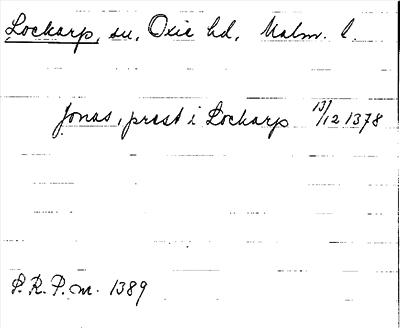 Lockarp, sn, Oxie hd, Malm. l.
Jonas, präst i Lockarp 13/12 1378
S.R.P. m. 1389